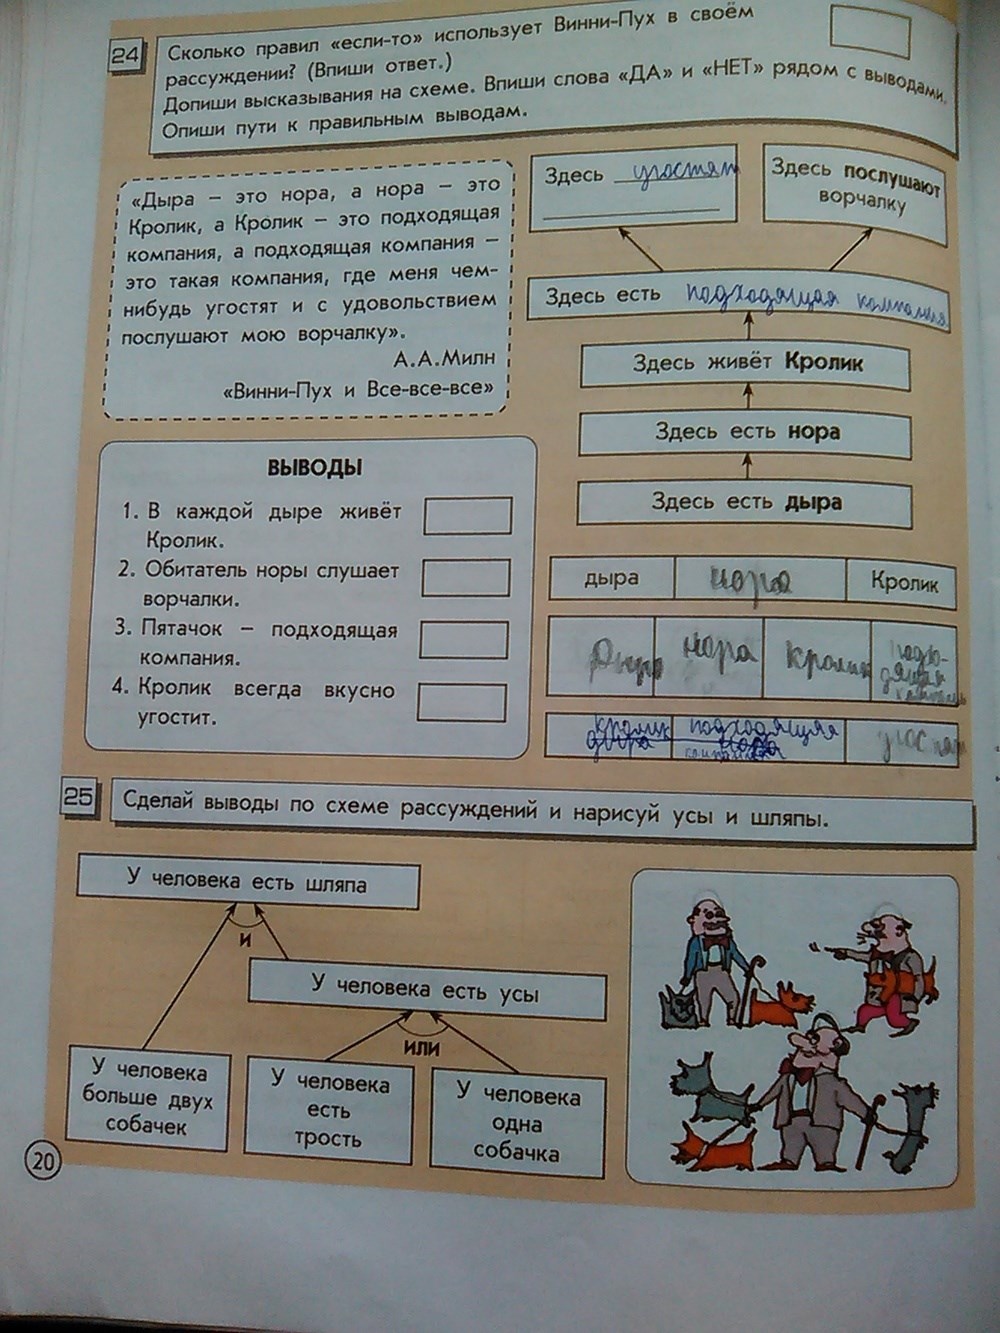 24
Сколько правил «если-то» использует Винни-Пух в своём
рассуждении? (Впиши ответ.)
Допиши высказывания на схеме. Впиши слова «ДА» и «НЕТ» рядом с выводами.
Опиши пути к правильным выводам.
«Дыра – это нора, а нора – это
Кролик, а Кролик – это подходящая
компания, а подходящая компания –
это такая компания, где меня чем-
нибудь угостят и с удовольствием
послушают мою ворчалку».
А.А.Милн
«Винни-Пух и Все-все-все»
Здесь угостят
Здесь послушают
ворчалку
Здесь есть подходящая компания
Здесь живёт Кролик
Здесь есть нора
Здесь есть дыра
ВЫВОДЫ
1. В каждой дыре живёт
Кролик.
2. Обитатель норы слушает
ворчалки.
3. Пятачок – подходящая
компания.
4. Кролик всегда вкусно
угостит.
дыра нора Кролик
дыра нора кролик
кролик подходящая угостят
дыра нора
25
Сделай выводы по схеме рассуждений и нарисуй усы и шляпы.
У человека есть шляпа
и
У человека есть усы
или
У человека
больше двух
собачек
У человека
есть
трость
У человека
одна
собачка
20